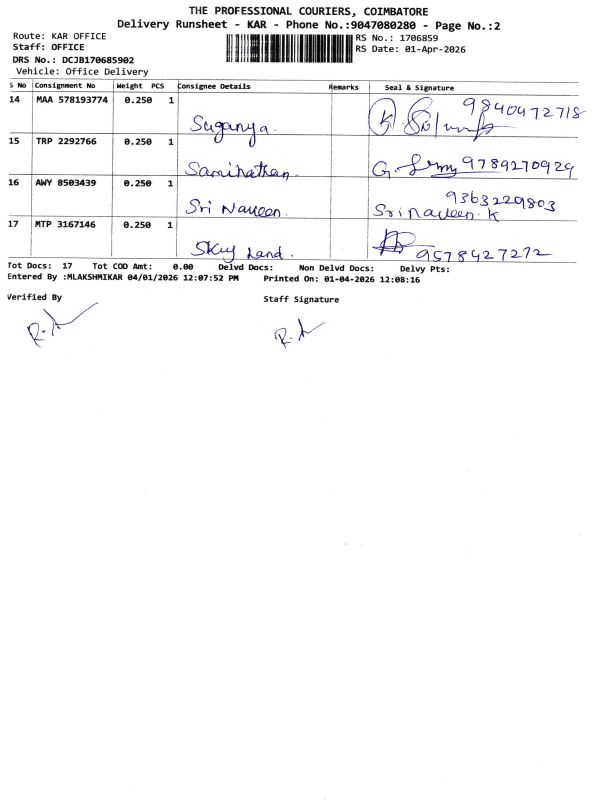 THE PROFESSIONAL COURIERS, COIMBATORE
Delivery Runsheet - KAR - Phone No.:9047080280 - Page No.:2
Route: KAR OFFICE
RS No.: 1706859
Staff: OFFICE
RS Date: 01-Apr-2026
DRS No.: DCJB170685902
Vehicle: Office Delivery
S No Consignment No Weight PCS Consignee Details Remarks Seal & Signature
14 MAA 578193774 0.250 1 Suganya. 9840472718
15 TRP 2292766 0.250 1 Saminathan. G. 9789270929
16 AWY 8503439 0.250 1 Sri Naveen. 9363229803
Sri Naveen. K
17 MTP 3167146 0.250 1 Sky Land. 9578427272
Tot Docs: 17 Tot COD Amt: 0.00 Delvd Docs: Non Delvd Docs: Delvy Pts:
Entered By :MLAKSHMIKAR 04/01/2026 12:07:52 PM Printed On: 01-04-2026 12:08:16
Verified By Staff Signature